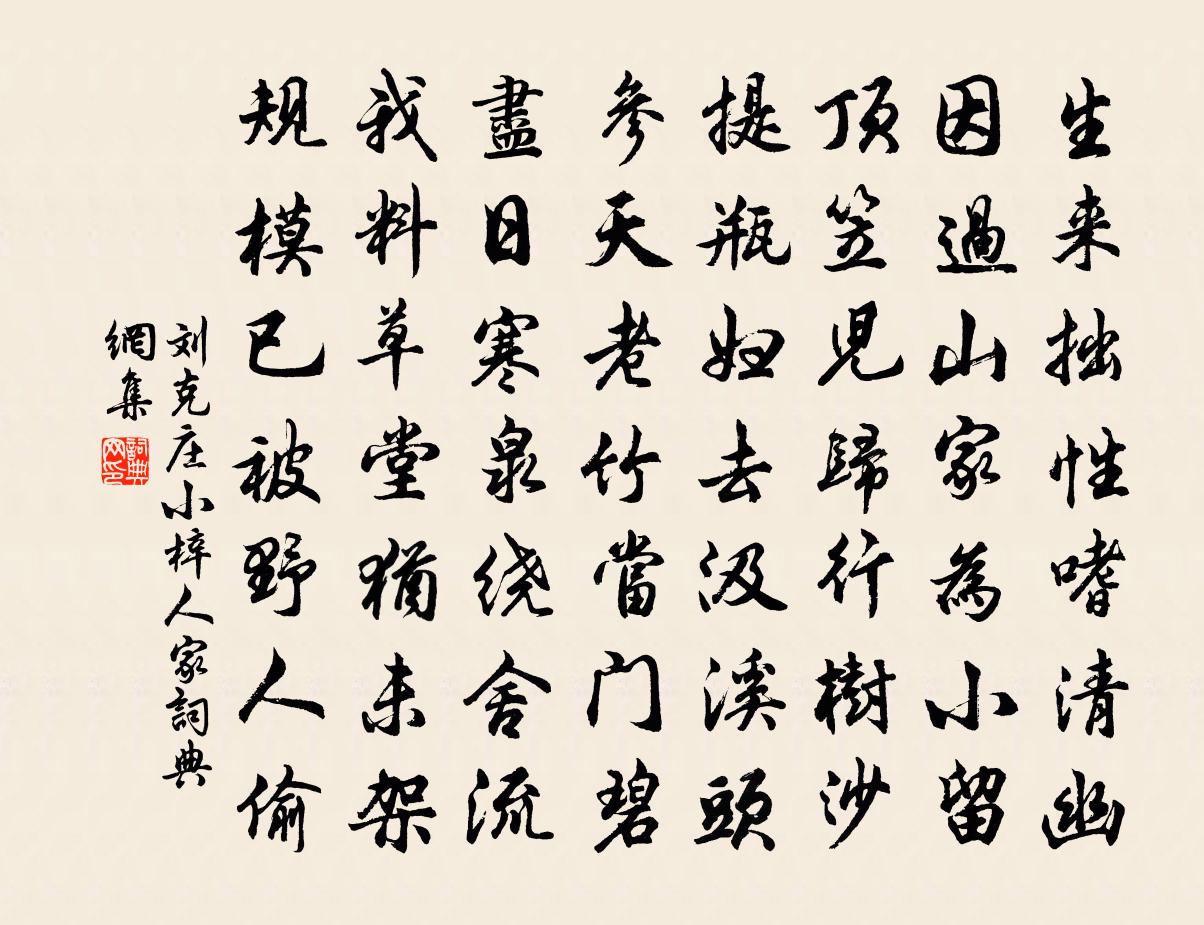 生来拙性嗜清幽
因過山家為小留
頂笠児歸行樹沙
提瓶婦去汲溪頭
參天老竹當门碧
盡日寒泉绕舍流
我料草堂猶未架
規模已被野人偷
刘克庄小梓人家詞典
網集
詞典網印